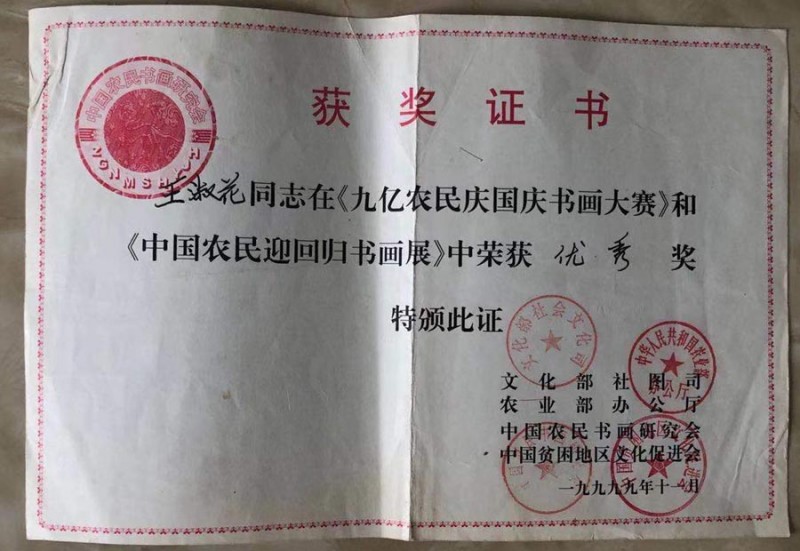 中国农民书画研究会
获奖证书
王淑花同志在《九亿农民庆国庆书画大赛》和
《中国农民迎回归书画展》中荣获 优秀 奖
特颁此证
文化部社会文化司
中华人民共和国农业部
办公厅
文化部社图司
农业部办公厅
中国农民书画研究会
中国贫困地区文化促进会
一九九九年十一月